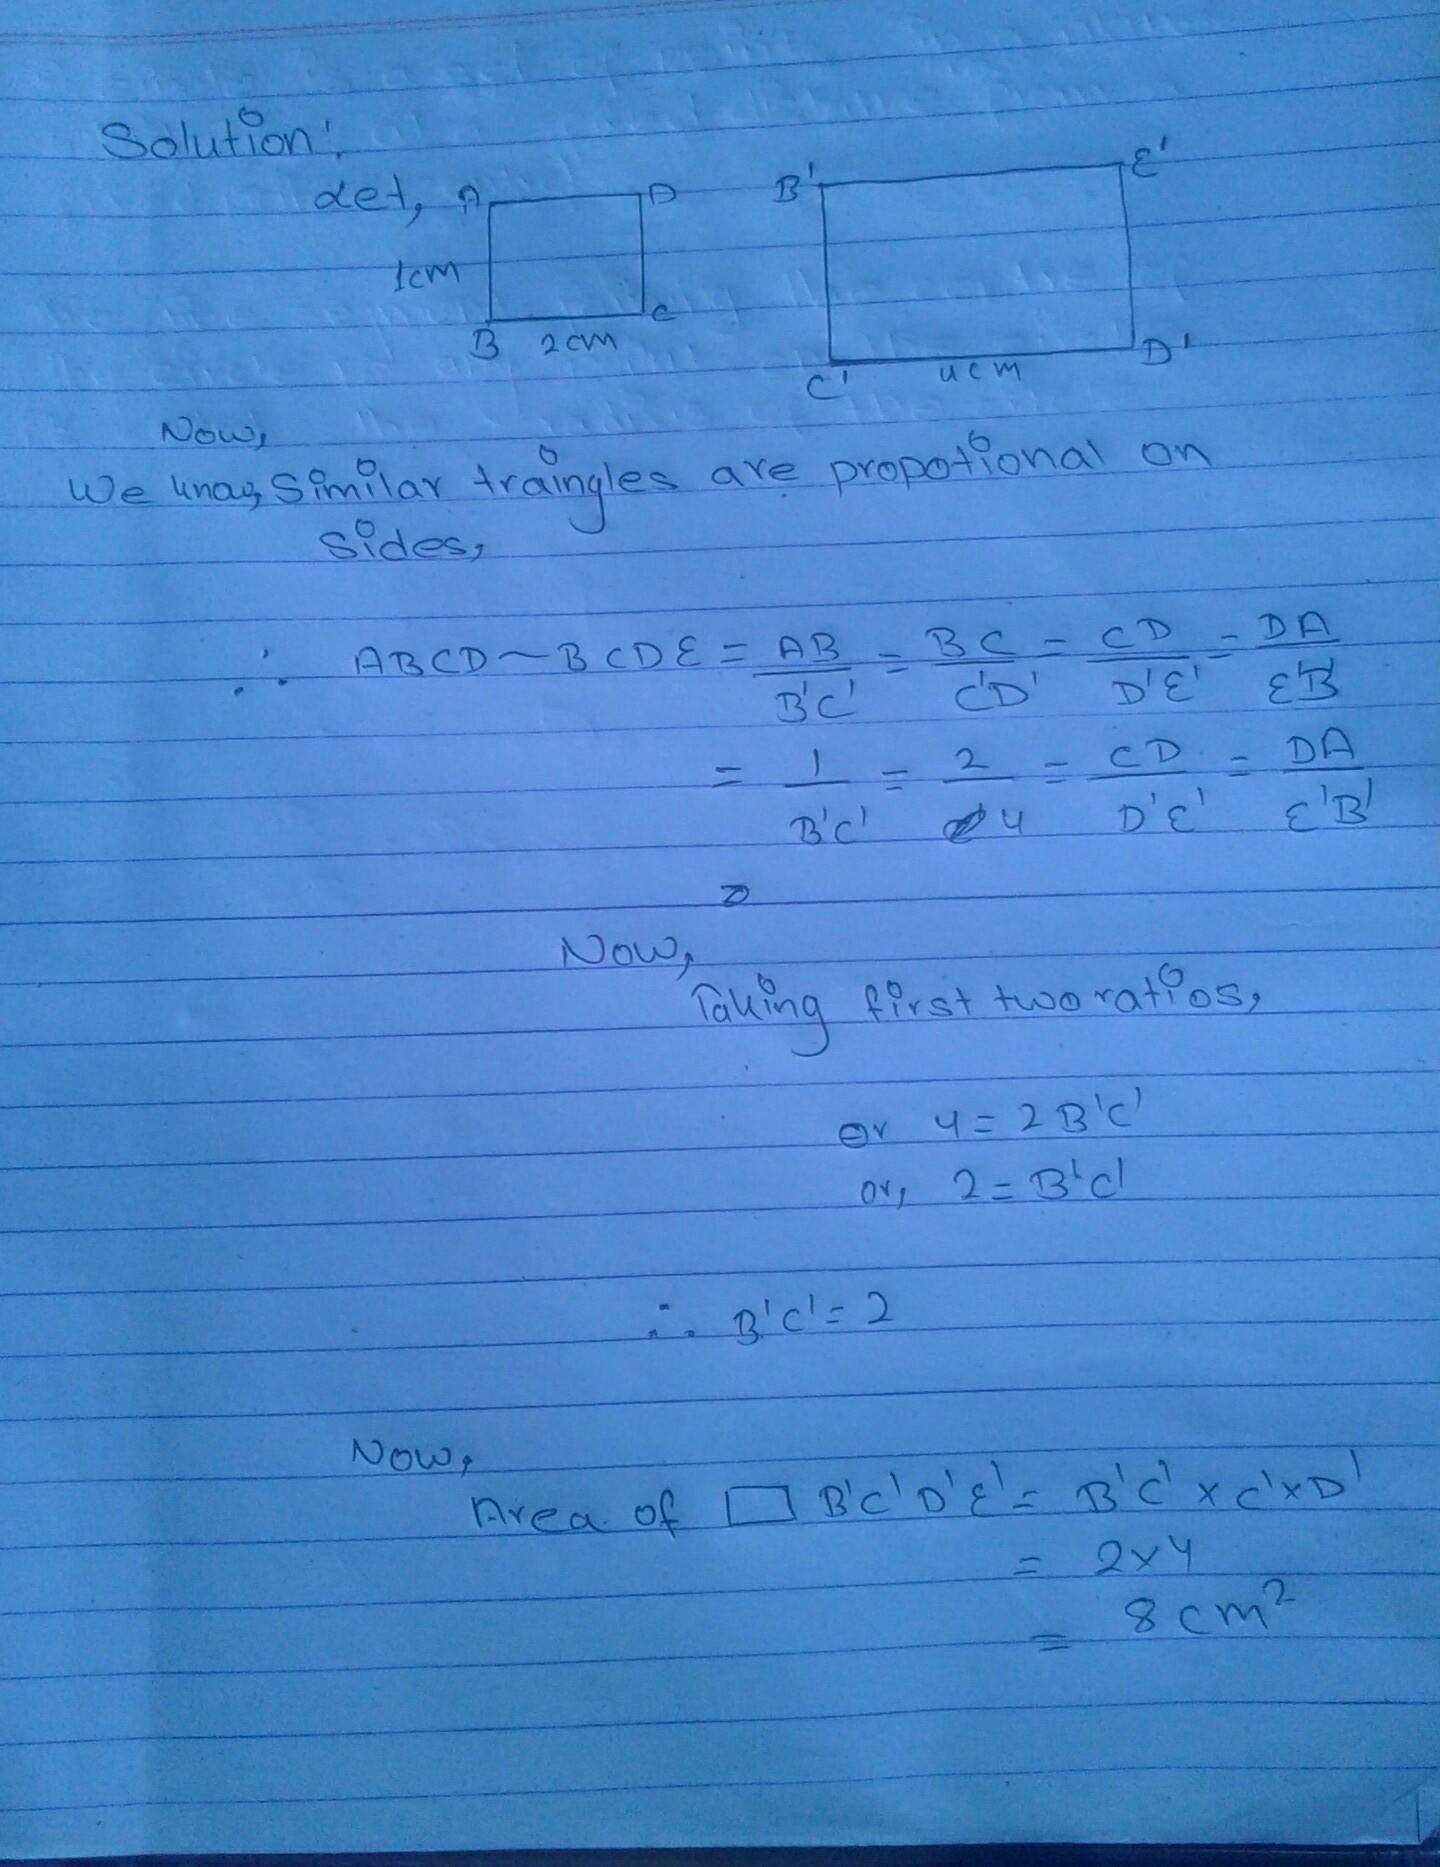 Solution:
Let, A D B' E'
1cm
B 2cm C
C' 4cm D'
Now,
We know, Similar traingles are propotional on
sides,
∴ ABCD ~ BCDE = AB/B'C' = BC/C'D' = CD/D'E' = DA/E'B'
= 1/B'C' = 2/4 = CD/D'E' = DA/E'B'
Now,
Taking first two ratios,
or 4 = 2 B'C'
or, 2 = B'C'
∴ B'C' = 2
Now,
Area of ▭ B'C'D'E' = B'C' × C'×D'
= 2×4
= 8cm²